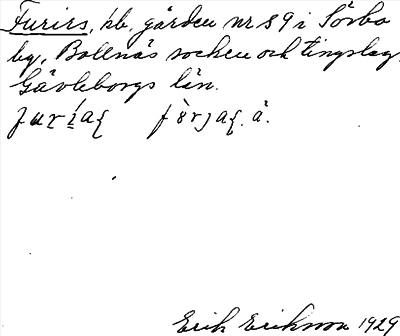 Furirs, kb. gården nr 89 i Sörbo
by, Bollnäs socken och tingslag,
Gävleborgs län.
Erik Erikson 1929